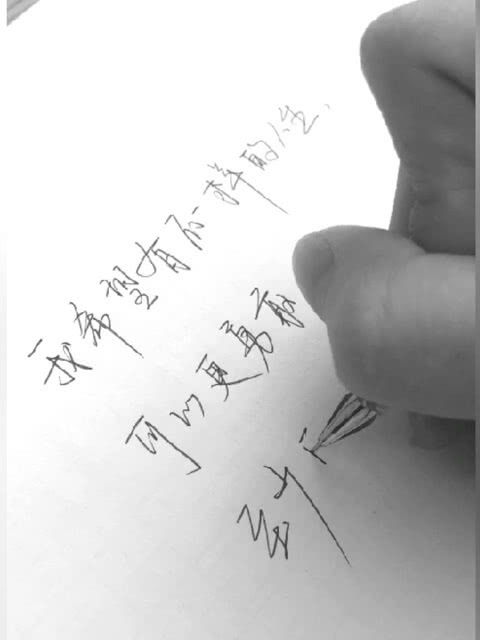 我希望有不一样的人生.
可以更勇敢